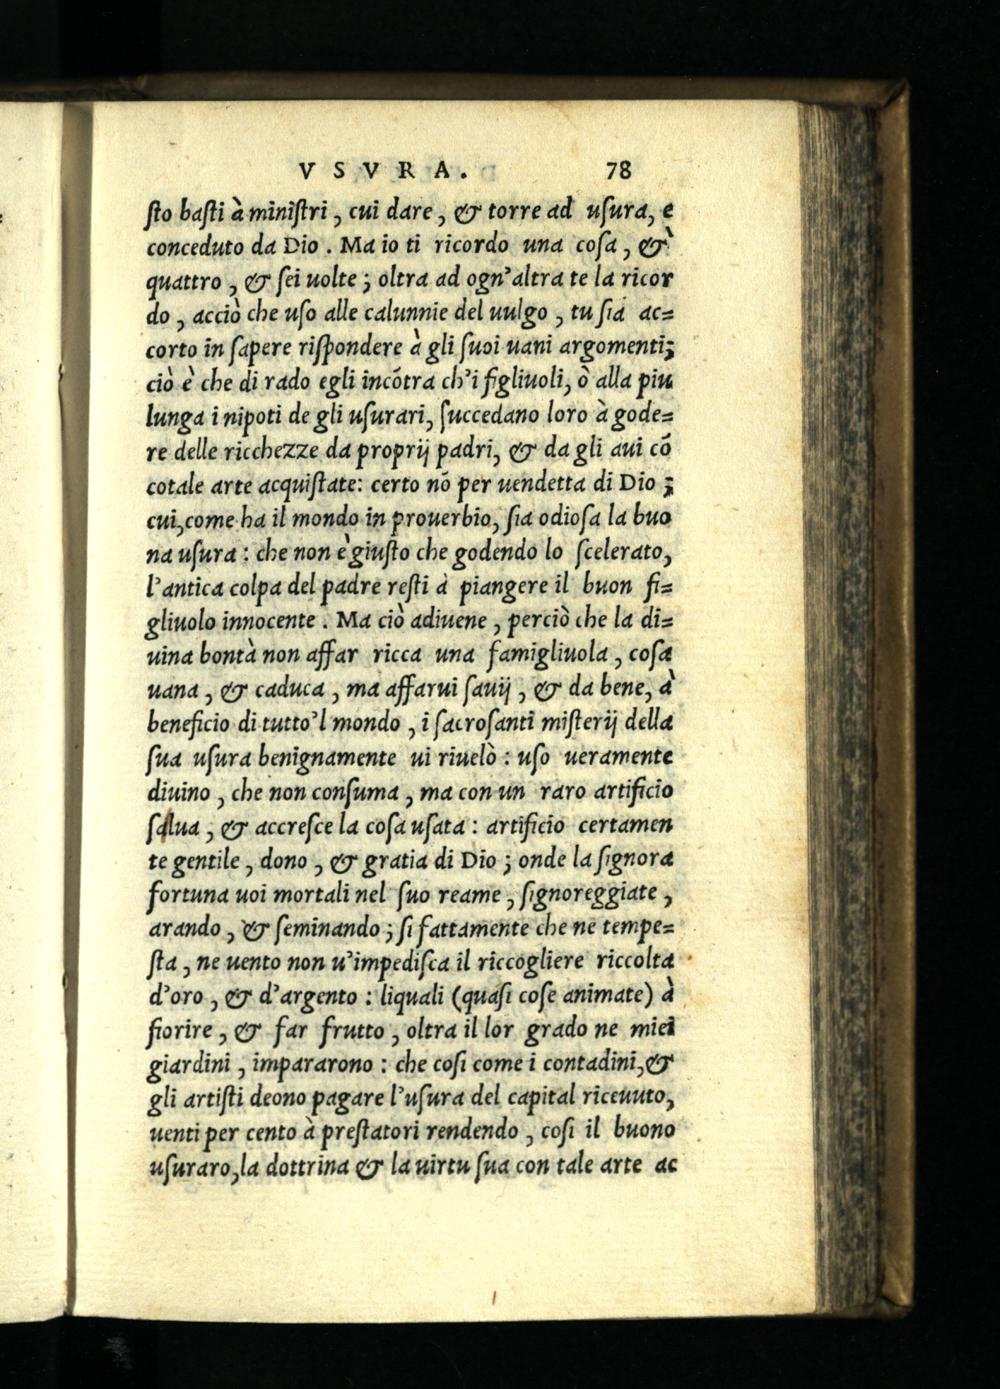 VSVRA. 78
ſto baſti à miniſtri, cui dare, & torre ad uſura, e
conceduto da Dio. Ma io ti ricordo una coſa, &
quattro, & ſei uolte; oltra ad ogn'altra te la ricor
do, acciò che uſo alle calunnie del uulgo, tu ſia ac=
corto in ſapere riſpondere à gli ſuoi uani argomenti;
ciò è che di rado egli incõtra ch'i figliuoli, ò alla piu
lunga i nipoti de gli uſurari, ſuccedano loro à gode=
re delle ricchezze da proprij padri, & da gli aui cõ
cotale arte acquiſtate: certo nõ per uendetta di Dio;
cui, come ha il mondo in prouerbio, ſia odioſa la buo
na uſura: che non è giuſto che godendo lo ſcelerato,
l'antica colpa del padre reſti à piangere il buon fi=
gliuolo innocente. Ma ciò adiuene, perciò che la di=
uina bontà non affar ricca una famigliuola, coſa
uana, & caduca, ma affarui ſauij, & da bene, à
beneficio di tutto'l mondo, i ſacroſanti miſterij della
ſua uſura benignamente ui riuelò: uſo ueramente
diuino, che non conſuma, ma con un raro artificio
ſalua, & accreſce la coſa uſata: artificio certamen
te gentile, dono, & gratia di Dio; onde la ſignora
fortuna uoi mortali nel ſuo reame, ſignoreggiate,
arando, & ſeminando; ſi fattamente che ne tempe=
ſta, ne uento non u'impediſca il riccogliere riccolta
d'oro, & d'argento: liquali (quaſi coſe animate) à
fiorire, & far frutto, oltra il lor grado ne miei
giardini, impararono: che coſi come i contadini, &
gli artiſti deono pagare l'uſura del capital riceuuto,
uenti per cento à preſtatori rendendo, coſi il buono
uſuraro, la dottrina & la uirtu ſua con tale arte ac